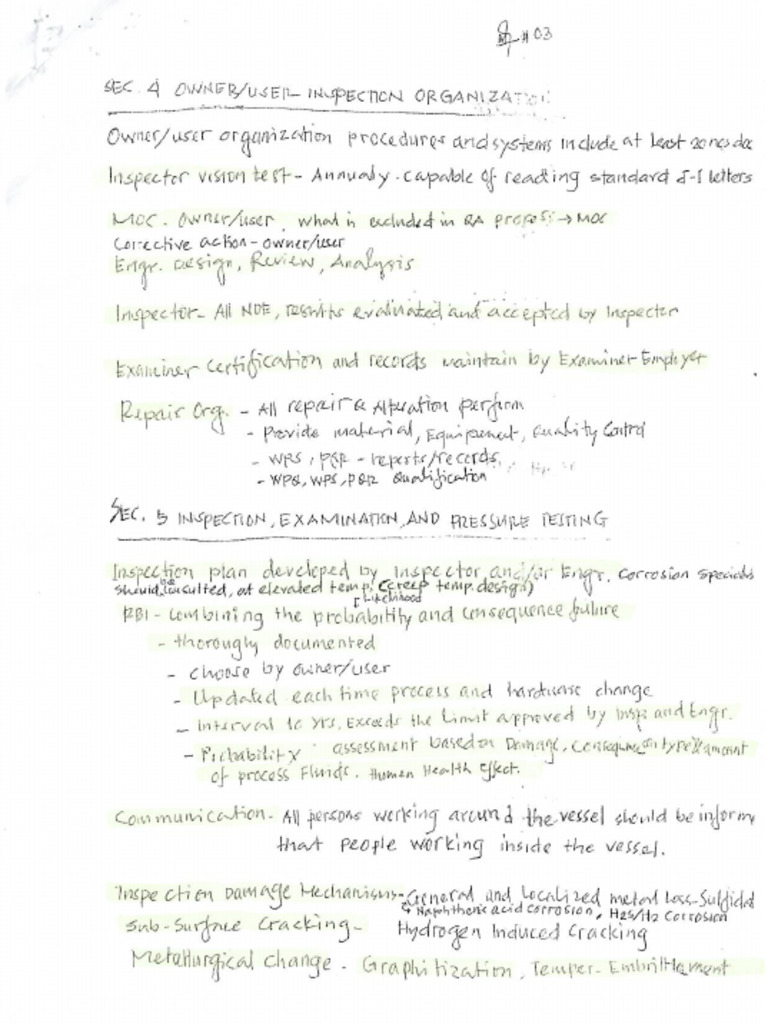 #03
SEC. 4 OWNER/USER INSPECTION ORGANIZATI
Owner/user organization procedures and systems include at least
Inspector vision test - Annualy. capable of reading standard J-1 letters
MOC. Owner/user, what is excluded in QA → MOC
Corective action - owner/user
Engr. Design, Review, Analysis
Inspector - All NDE, results evaluated and accepted by Inspector
Examiner certification and records maintain by Examiner Employer
Repair Org. - All repair & Alteration perform
- Provide material, Equipment, Quality Control
- WPS, PQR - reports/records
- WPQ, WPS, PQR Qualification
SEC. 5 INSPECTION, EXAMINATION, AND PRESSURE TESTING
Inspection plan developed by Inspector and/or Engr. corrosion specialis
should be consulted, at elevated temp. (creep temp. design)
Likelihood
RBI - combining the probability and consequence failure
- thoroughly documented
- choose by owner/user
- Updated each time process and hardware change
- Interval 10 yrs. Exceeds the limit approved by Insp and Engr.
- Probability assessment based on Damage, Consequence on type & amount
of process Fluids. Human Health Effect.
Communication - All persons working around the vessel should be inform
that people working inside the vessel.
Inspection Damage Mechanisms - General and localized metal loss - Sulfidat
Naphthenic acid corrosion, H2S/H2 Corrosion
Sub-Surface Cracking - Hydrogen Induced Cracking
Metallurgical change - Graphitization, Temper-Embrittlement